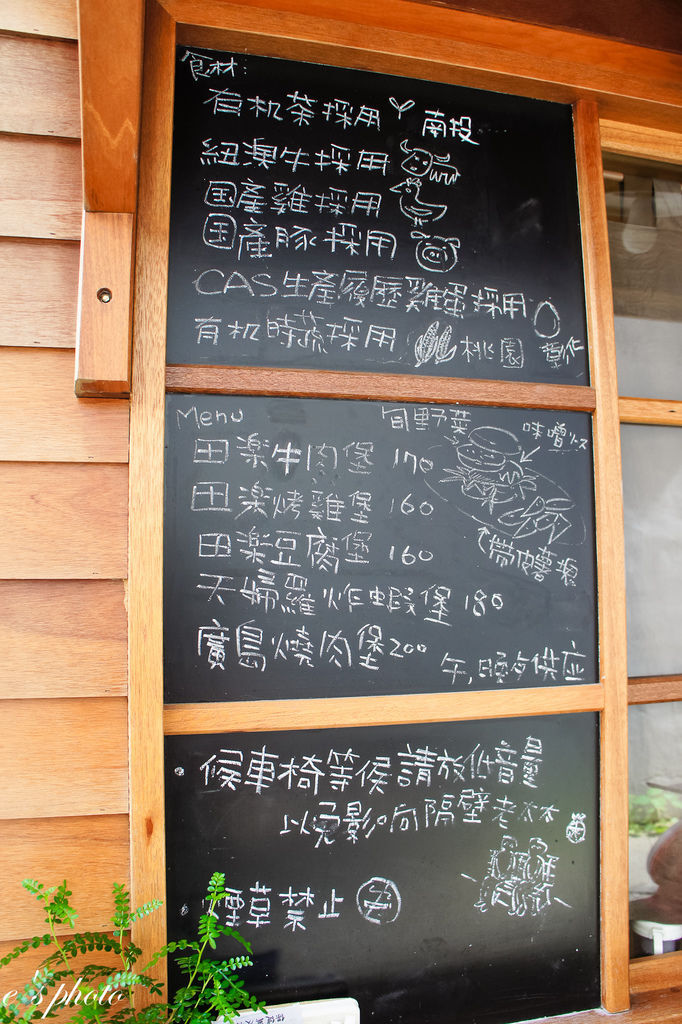 食材:
有机茶採用 南投
紐澳牛採用
国產雞採用
国產豚採用
CAS生產履歷雞蛋採用
有机時蔬採用 桃園 彰化
Menu
旬野菜
味噌ソース
田楽牛肉堡 170
田楽烤雞堡 160
田楽豆腐堡 160
帶皮薯條
天婦羅炸蝦堡 180
廣島燒肉堡 200
午,晚夕供应
・候車椅等候請放低音量
以免影响隔壁老太太
煙草禁止
e's photo